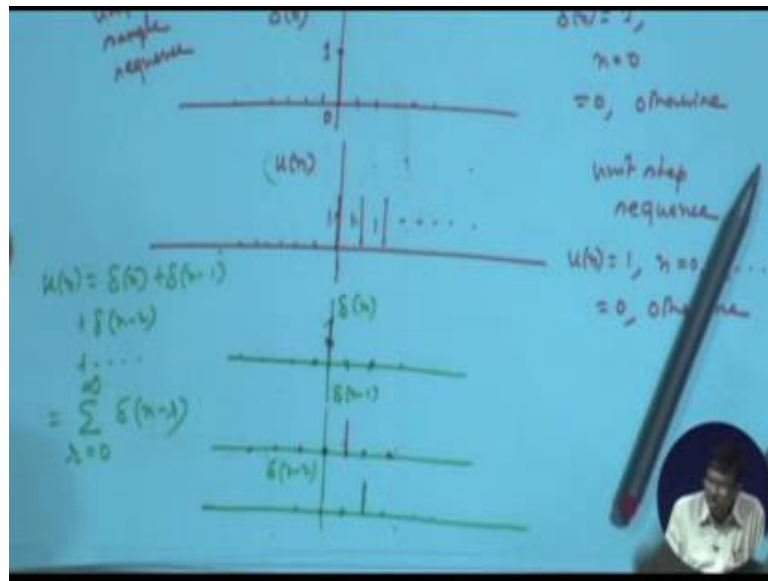 unit
sample
sequence
δ(n)
1
0
δ(n) = 1,
n=0
=0, otherwise
u(n)
1 1 1 . . . . .
unit step
sequence
u(n) = 1, n=0, . . .
= 0, otherwise
u(n) = δ(n) + δ(n-1)
+ δ(n-2)
+ . . . .
= ∞ ∑ r=0 δ(n-r)
δ(n)
δ(n-1)
δ(n-2)